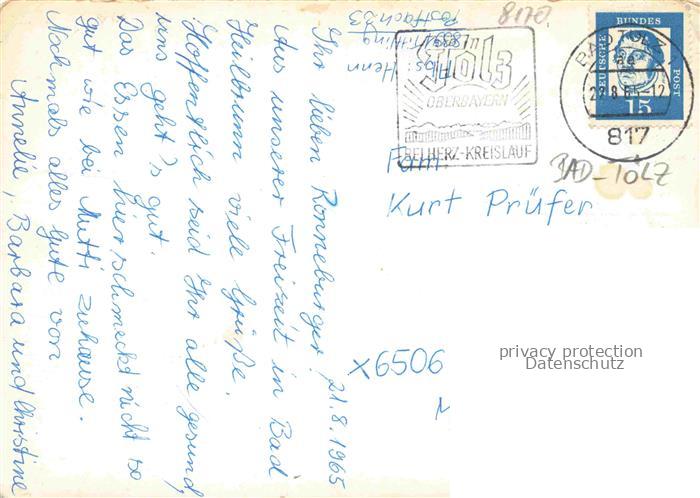 21.8.1965
Ihr lieben Ronneburger!
Aus unserer Freizeit in Bad
Heilbrunn viele Grüße.
Hoffentlich seid Ihr alle gesund,
uns geht's gut.
Das Essen hier schmeckt nicht so
gut wie bei Mutti zuhause.
Nochmals alles Gute von
Annelie, Barbara und Christine
Abs: Henn
Postfach 33
8170
Tölz
OBERBAYERN
BEI HERZ-KREISLAUF
DEUTSCHE BUNDES POST
15
BAD TÖLZ
817
BAD-TÖLZ
Fam.
Kurt Prüfer
x6506
privacy protection
Datenschutz